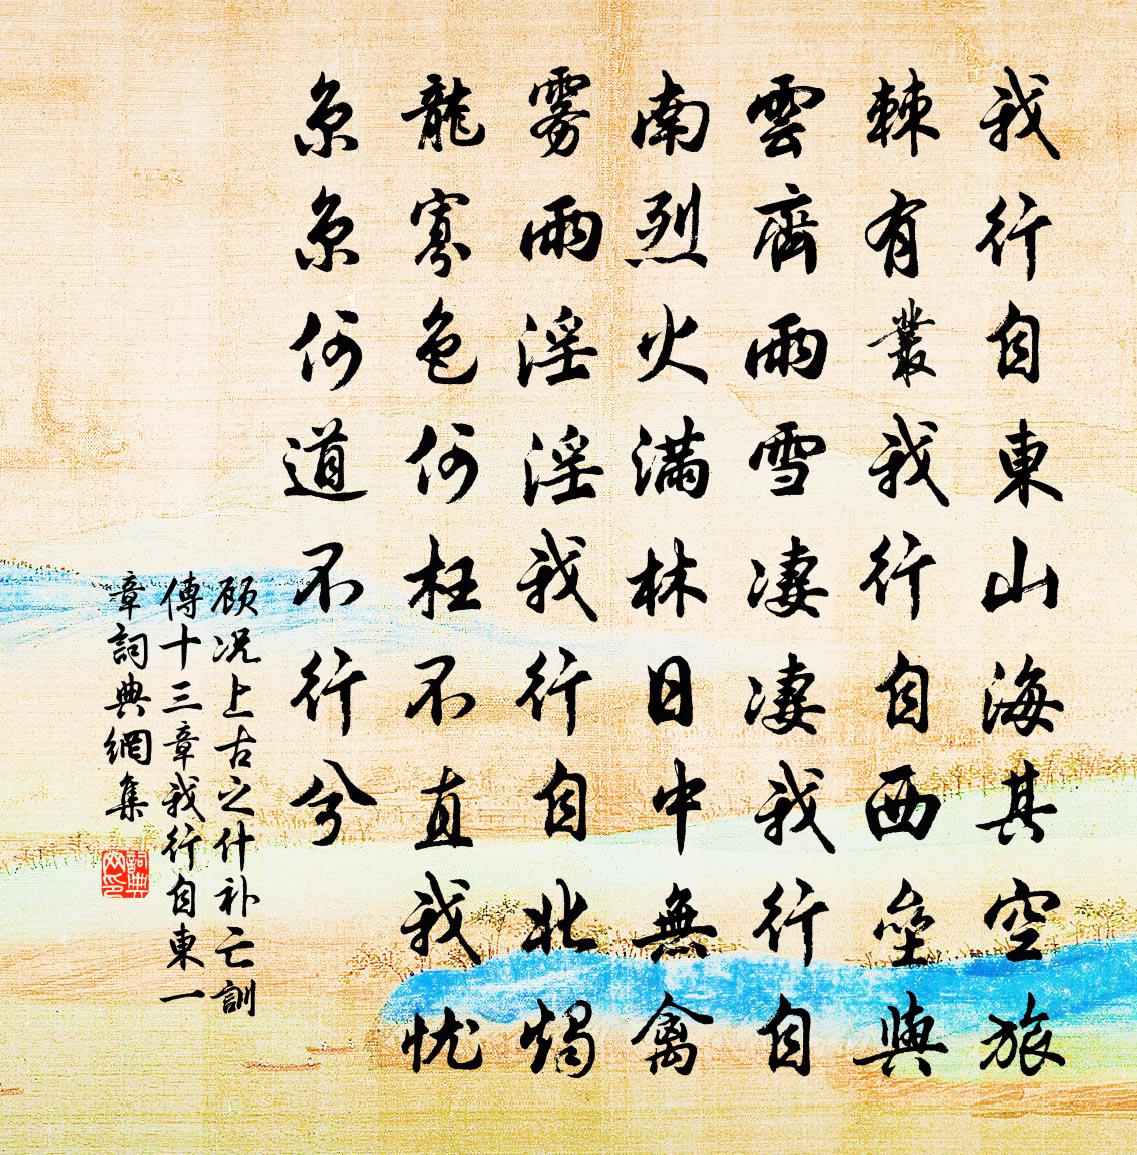 我行自東山海其空旅
棘有叢我行自西垒與
雲齊雨雪凄凄我行自
南烈火滿林日中無禽
雾雨淫淫我行自北燭
龍寡色何枉不直我忧
京京何道不行兮
顾况上古之什补亡訓
傳十三章我行自東一
章詞典網集
詞典
网印